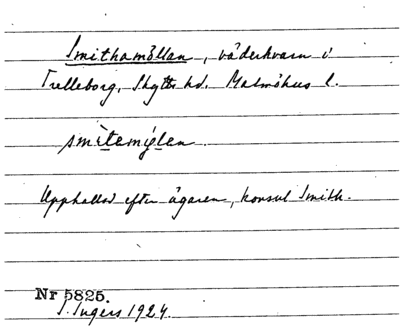 Smithamöllan, väderkvarn i
Trelleborg, Skytts hd. Malmöhus l.
smìtemy̍lan.
Uppkallad efter ägaren, konsul Smith.
Nr 5825.
I. Ingers 1924.